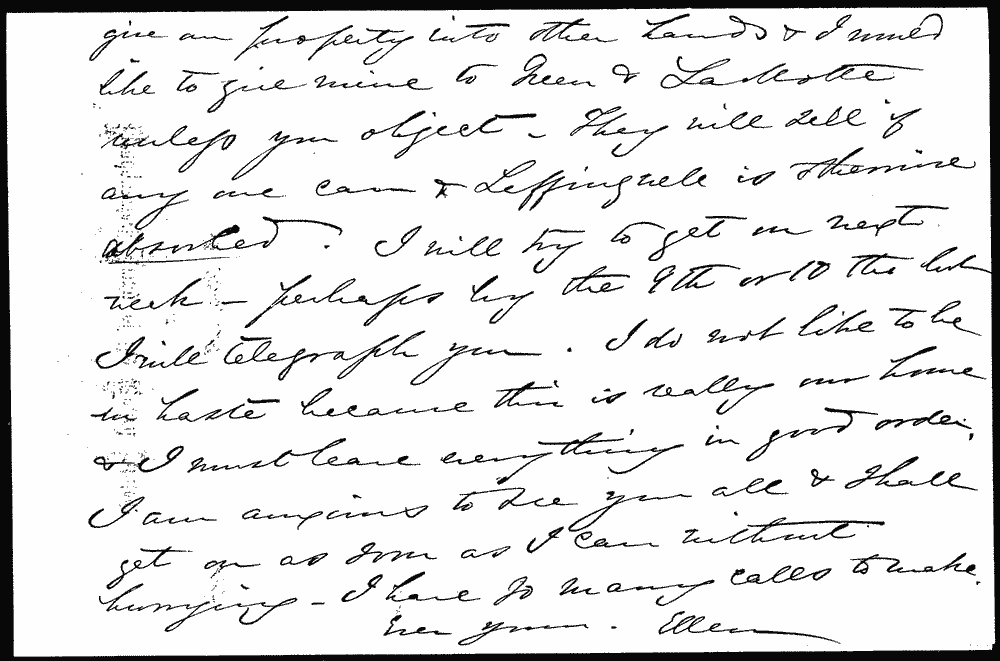 give our property into other hands & I would
like to give mine to Green & LaMotte
unless you object - They will sell if
any one can & Leffingwell is otherwise
absorbed. I will try to get on next
week - perhaps by the 9th or 10 the
I will telegraph you. I do not like to be
in haste because this is really our home
& I must leave everything in good order.
I am anxious to see you all & shall
get on as soon as I can without
hurrying - I have so many calls to make.
Ever yours. Ellen